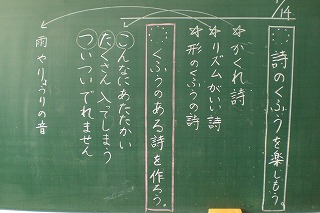 1/14
詩のくふうを楽しもう。
☆かくれ詩
☆リズムがいい詩
☆形のくふうの詩
くふうのある詩を作ろう。
こんなにあたたかい
たくさん入ってしまう
ついついでれません
雨やりょうりの音